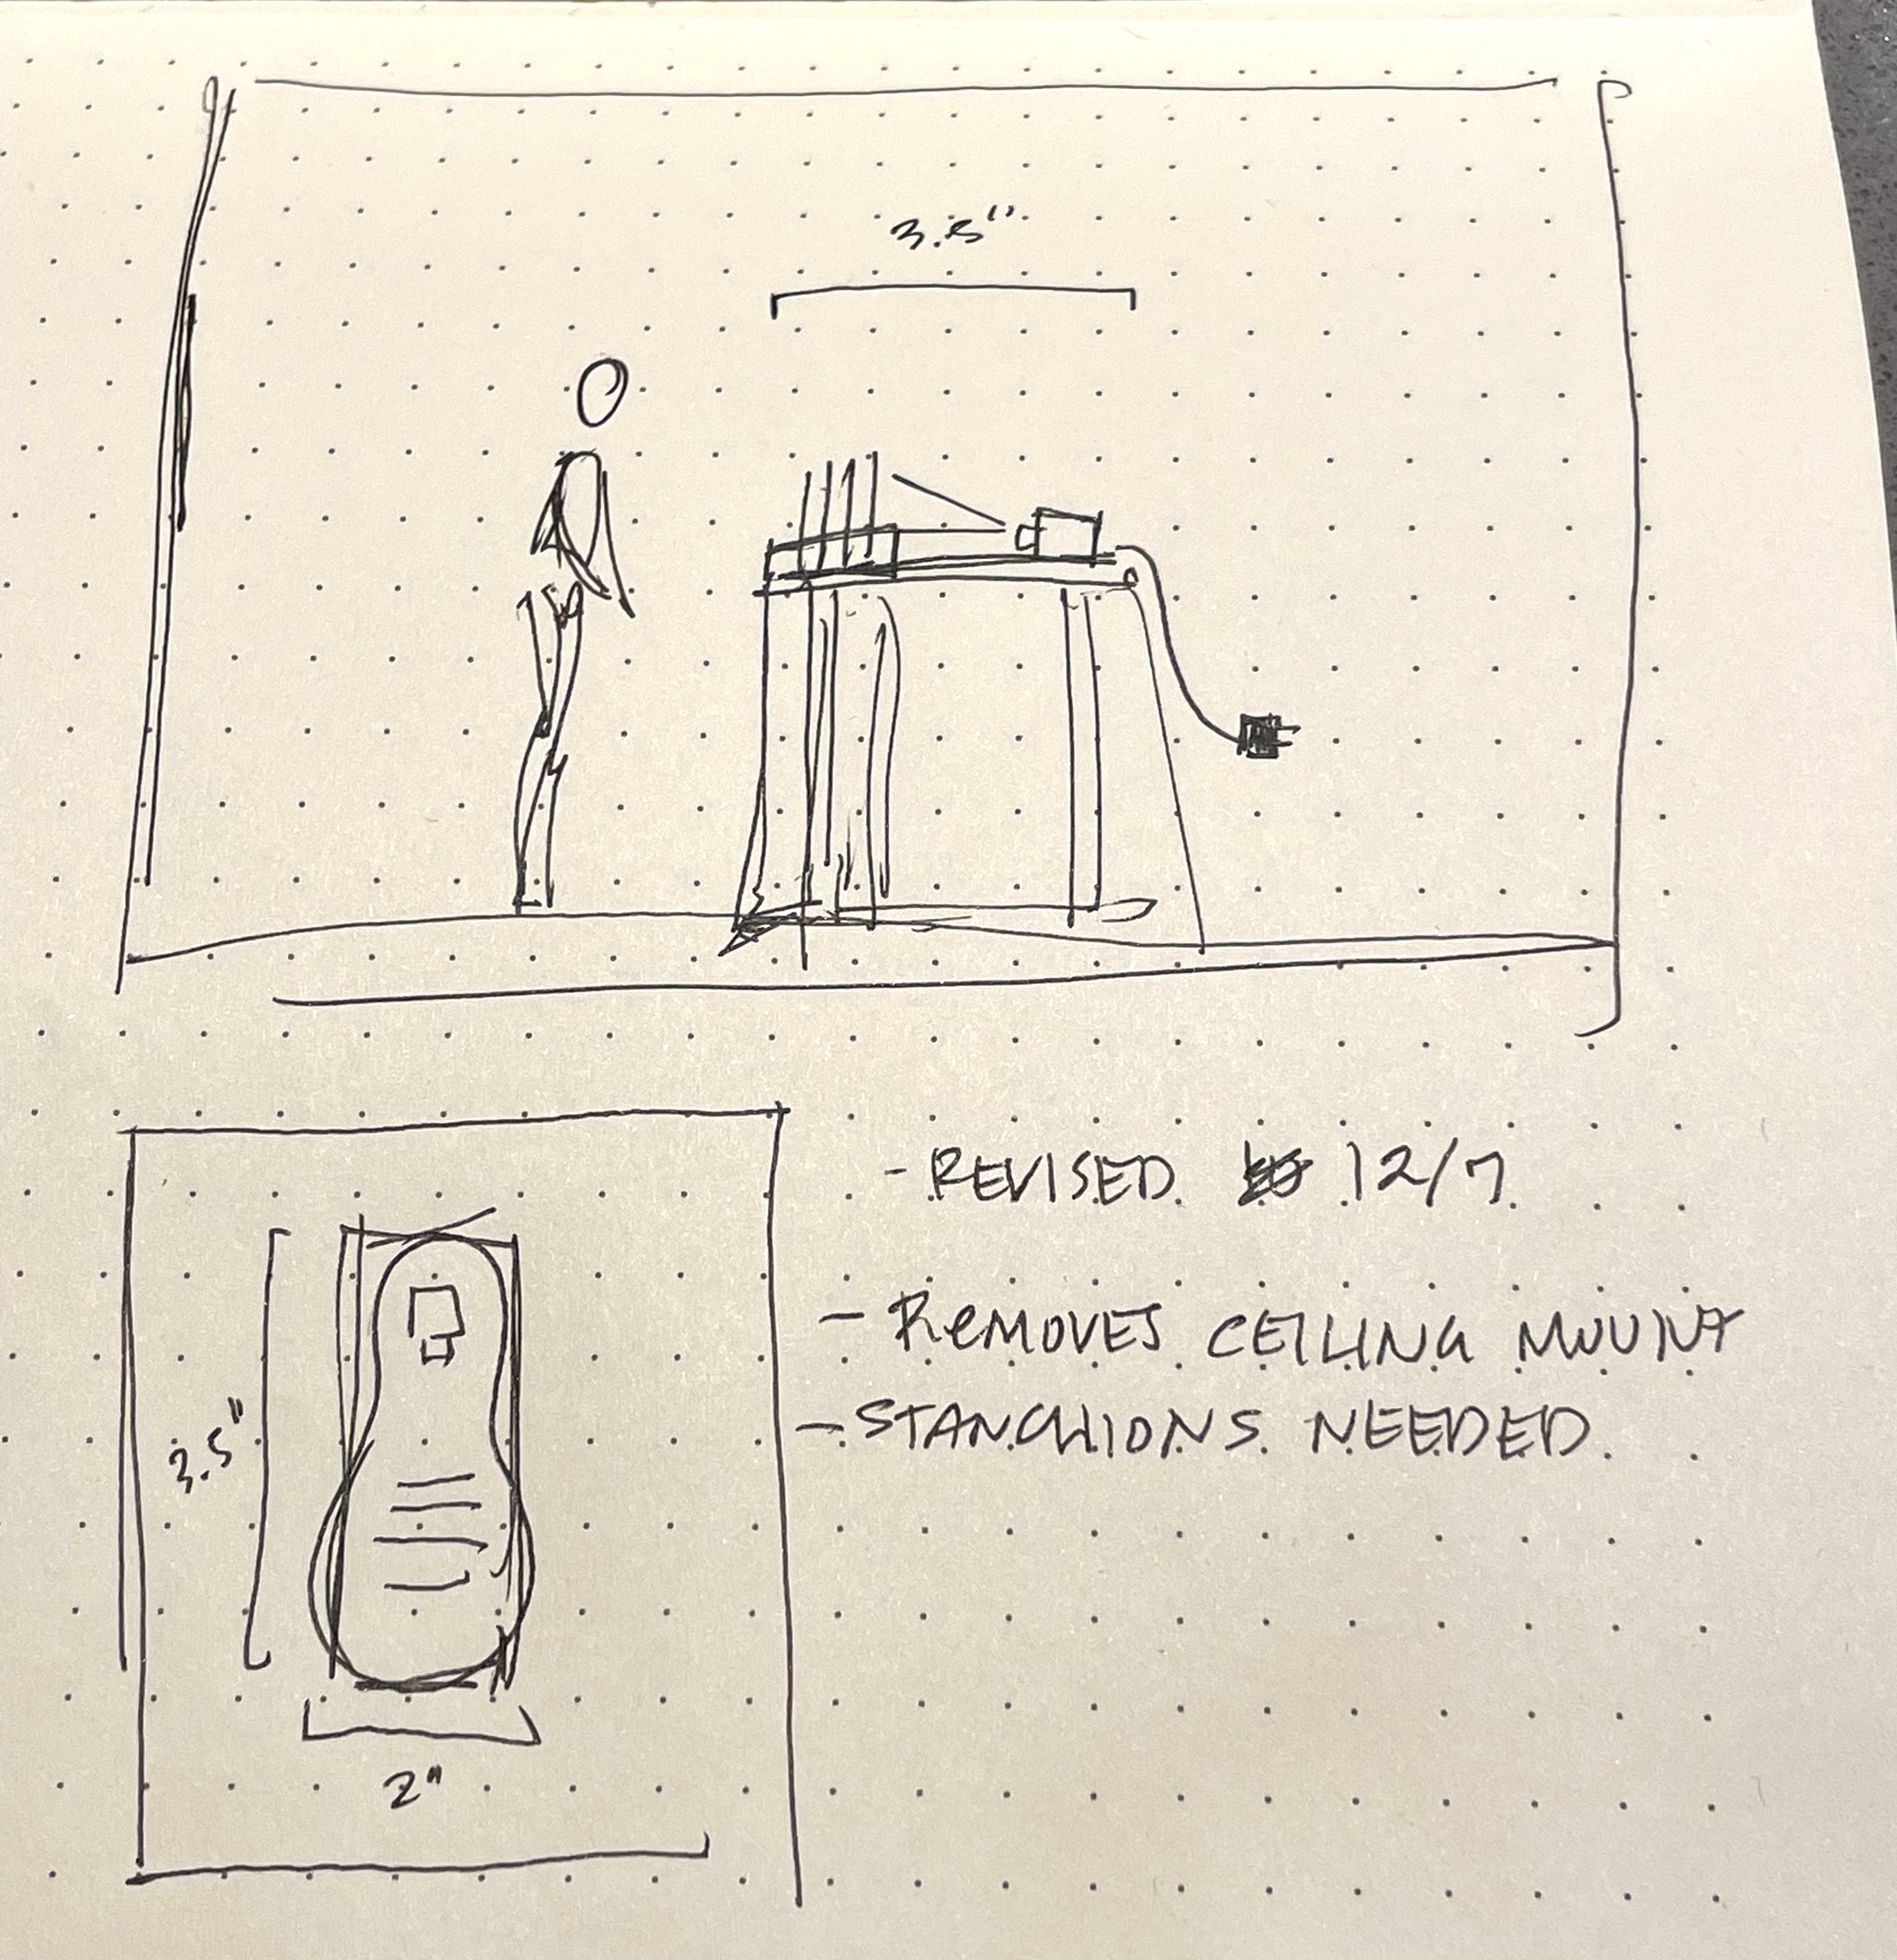 3.5"
- REVISED 12/7
- REMOVES CEILING MOUNT
- STANCHIONS NEEDED
3.5"
2"